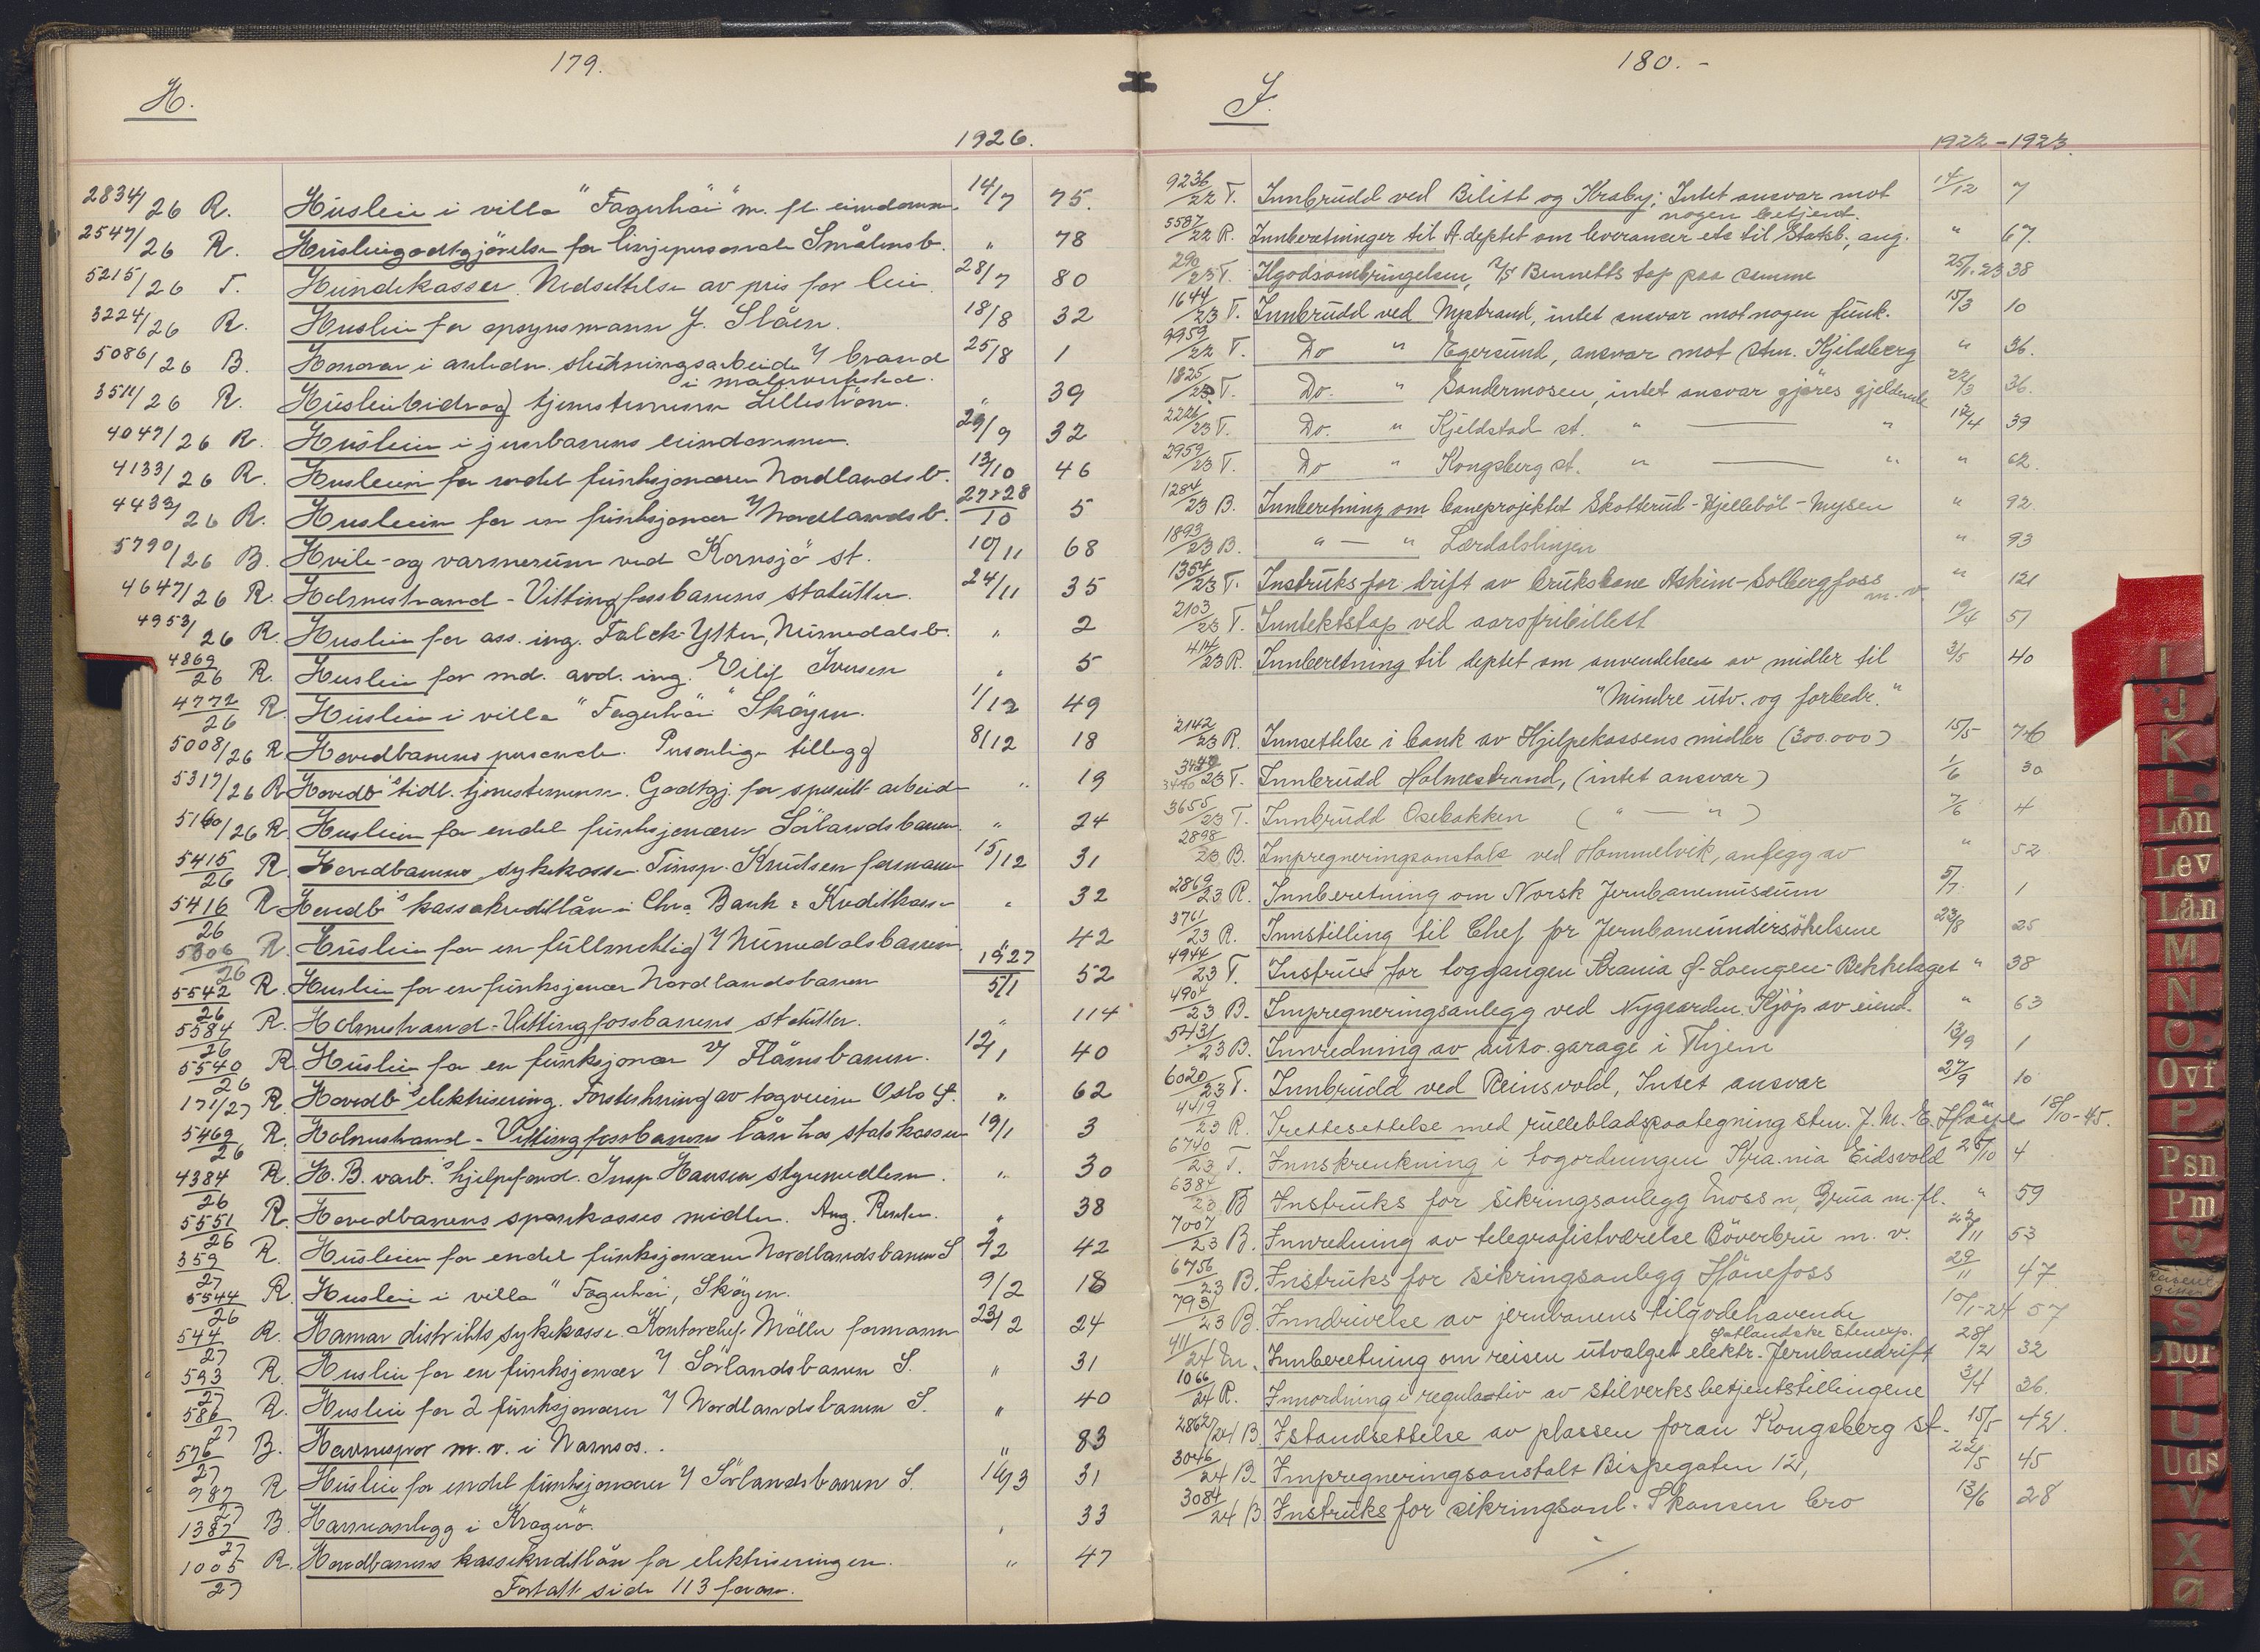 179.
H.
1926.
2834/26 R. Husleie i villa "Fagerhöi" m. fl. eiendomm. 14/7 75.
2547/26 R. Husleiegodtgjörelse for linjepersonale Smålensb. " 78
5215/26 T. Hundekasser. Nedsettelse av pris for leie. 28/7 80
3224/26 R. Husleie for opsynsmann J. Slåen. 18/8 32
5086/26 B. Honorar i anledn. slukningsarbeide v/ brand 25/8 1
i malerverksted.
3511/26 R. Husleiebidrag tjenestemenn Lilleström. " 39
4047/26 R. Husleien i jernbanens eiendommer. 29/9 32
4133/26 R. Husleien for endel funksjonærer Nordlandsb. 13/10 46
4433/26 R. Husleien for en funksjonær v/ Nordlandsb. 27+28/10 5
5790/26 B. Hvile- og varmerum ved Kornsjö st. 10/11 68
4647/26 R. Holmestrand-Vittingfossbanens statutter. 24/11 35
4953/26 R. Husleie for ass. ing. Falck-Ytter, Numedalsb. " 2
4869/26 R. Husleie for md. avd. ing. Eilif Iversen " 5
4772/26 R. Husleie i villa "Fagerhöi" Sköyen. 1/12 49
5008/26 R. Hovedbanens personale. Personlige tillegg 8/12 18
5317/26 R. Hovedb's tidl. tjenestemenn. Godtgj. for spesielt arbeid " 19
5160/26 R. Husleien for endel funksjonærer Sörlandsbanen. " 24
5415/26 R. Hovedbanens sykekasse. Tinsp. Knutsen formann 15/12 31
5416/26 R. Hovedb's kassakredittlån i Chra. Bank & Kreditkasse " 32
5306/26 R. Husleie for en fullmektig v/ Numedalsbanen " 42
1927
5542/26 R. Husleie for en funksjonær Nordlandsbanen 5/1 52
5584/26 R. Holmestrand-Vittingfossbanens statutter. " 114
5540/26 R. Husleie for en funksjonær v/ Flåmsbanen. 12/1 40
171/27 R. Hovedb's elektrisering. Forsterkning av togveiene Oslo Ö. " 62
5469/26 R. Holmestrand-Vittingfossbanens lån hos statskassen 19/1 3
4384/26 R. H.B. varb.'s hjelpefond. Insp. Hansen styremedlem. " 30
5551/26 R. Hovedbanens sparekasses midler. Ang. Renten. " 38
359/27 R. Husleien for endel funksjonærer Nordlandsbanen S 2/2 42
5544/26 R. Husleie i villa "Fagerhöi, Sköyen. 9/2 18
544/27 R. Hamar distrikts sykekasse. Kontorchef Möller formann 23/2 24
593/27 R. Husleie for en funksjonær v/ Sörlandsbanen S. " 31
586/27 R. Husleie for 2 funksjonærer v/ Nordlandsbanen S. " 40
576/27 B. Havnespor m. v. i Namsos. " 83
787/27 R. Husleie for endel funksjonærer v/ Sörlandsbanen S. 16/3 31
1387/27 B. Havneanlegg i Kragerö. " 33
1005/27 R. Hovedbanens kassekredittlån for elektriseringen. " 47
Fortsatt side 113 foran.
180.-
I.
1922-1923
9236/22 T. Innbrudd ved Bilitt og Kraby; Intet ansvar mot 14/12 7
nogen betjent.
5587/22 R. Innberetninger til A.deptet om leveranser etc til Statsb., ang. " 67.
290/23 T. Ilgodsombringelsen, A/S Bennetts tap paa samme 25/1.23 38
1644/23 T. Innbrudd ved Nystrand, intet ansvar mot nogen funk. 15/3 10
9959/22 T. Do " Egersund, ansvar mot stm. Kjeldberg " 36.
1825/23 T. Do. " Sandermosen, intet ansvar gjöres gjeldende 22/3 36.
2226/23 T. Do. " Kjeldstad st. " — " 12/4 39
2959/23 T. Do " Kongsberg st. " — " " 62.
1284/23 B. Innberetning om baneprojektet Skotterud-Hjelleböl-Mysen " 92.
1893/23 B. " — " Lærdalslinjen " 93
1354/23 T. Instruks for drift av bruksbane Askim-Solbergfoss m. v. " 121
2103/23 T. Inntektstap ved aarsfribillett 19/4 51
414/23 R. Innberetning til deptet om anvendelsen av midler til 3/5 40
"Mindre utv. og forbedr."
2142/23 R. Innsettelse i bank av Hjelpekassens midler (300.000) 15/5 76
3440/23 T. Innbrudd Holmestrand, (intet ansvar) 1/6 30
3655/23 T. Innbrudd Osebakken ( " — " ) 7/6 4
2898/23 B. Impregneringsanstalt ved Hommelvik, anlegg av " 52
2869/23 R. Innberetning om Norsk Jernbanemuseum 5/7. 1
3761/23 R. Innstilling til Chef for Jernbaneundersökelsene 23/8 25
4944/23 T. Instrux for toggangen Krania Ö-Loengen-Bekkelaget " 38
4904/23 B. Impregneringsanlegg ved Nygaarden. Kjöp av eiend. " 63
5431/23 B. Innredning av auto.garage i Thjem 13/9 1
6020/23 T. Innbrudd ved Reinsvold, Intet ansvar 27/9 10
4419/23 R. Irettesettelse med rullebladspaategning stm. J. M. E. 18/10-45.
6740/23 T. Innskrenkning i togordningen Kra.nia Eidsvold 25/10 4
6384/23 B Instruks for sikringsanlegg Moss n, Grua m. fl. " 59
7007/23 B. Innredning av telegrafistværelse Böverbru m. v. 22/11 53
6756/23 B. Instruks for sikringsanlegg Hönefoss 29/11 47
7931/23 B. Inndrivelse av jernbanens tilgodehavende 10/1-24 57
411/24 Em. Innberetning om reisen utvalget elektr. Jernbanedrift 28/2 32
1066/24 R. Innordning i regulativ av stilverksbetjentstillingene 3/4 36.
2862/24 B Istandsettelse av plassen foran Kongsberg st. 15/5 42.
3046/24 B. Impregneringsanstalt Bispegaten 12, 22/5 45
3084/24 B Instruks for sikringsanl. Skansen bro 13/6 28
I
J
K
L
Lön
Lev
Lån
M
N
O
Ovf
P
Psn
Pm
Q
S
Spor
T
U
Uds
V
X
Ø